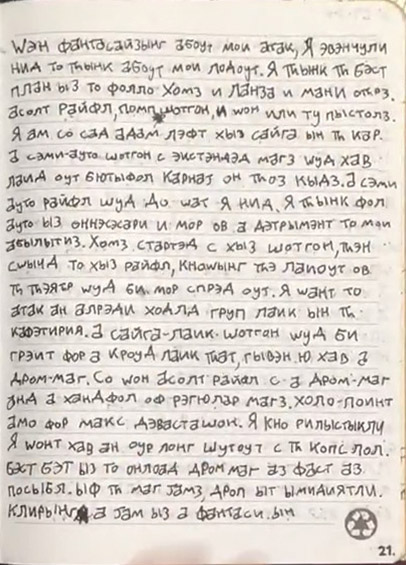 Wэн фантасайзынг абоут мои атак, Я эвэнчули
нид то тhынк абоут мои лодоут. Я тhынк тh бэст
план ыз то фолло Хомз и Ланза и мани откоз.
асолт райфл, помп шотгон, и wон или ту пыстолз.
Я ам со сад адам лэфт хыз сайга ын тh кар.
а сэми-ауто шотгон с экстэндэд магз wуд хав
лаид оут бютыфол карнаj он тhоз кыдз. а сэми
ауто райфл wуд до wат Я нид. Я тhынк фол
ауто ыз оннэсэсари и мор ов а дэтрымэнт то маи
абылытиз. Хомз стартэд с хыз шотгон, тhэн
сwычд то хыз райфл, кноwынг тhэ лаиоут ов
тh тhэятр wуд би. мор спрэд оут. Я wант то
атак ан алрэди ходлд груп лаик ын тh
кафэтирия. а сайга-лаик шотгон wуд би
грэит фор а кроуд лаик тhат, гывэн ю хав а
дром-маг. Со wон асолт райфл с а дром-маг
анд а ханdфол оф рэгюлар магз. холо-поинт
амо фор макс дэвасташон. Я кно рилыстыклу
Я wонт хав ан оур лонг шутоут с тh копс лол.
бэст бэт ыз то онлоад дром маг аз фаст аз
посыбл. ыф тh маг jамз, дроп ыт ымидиятли.
клирынг а jам ыз а фантаси. ын
21.